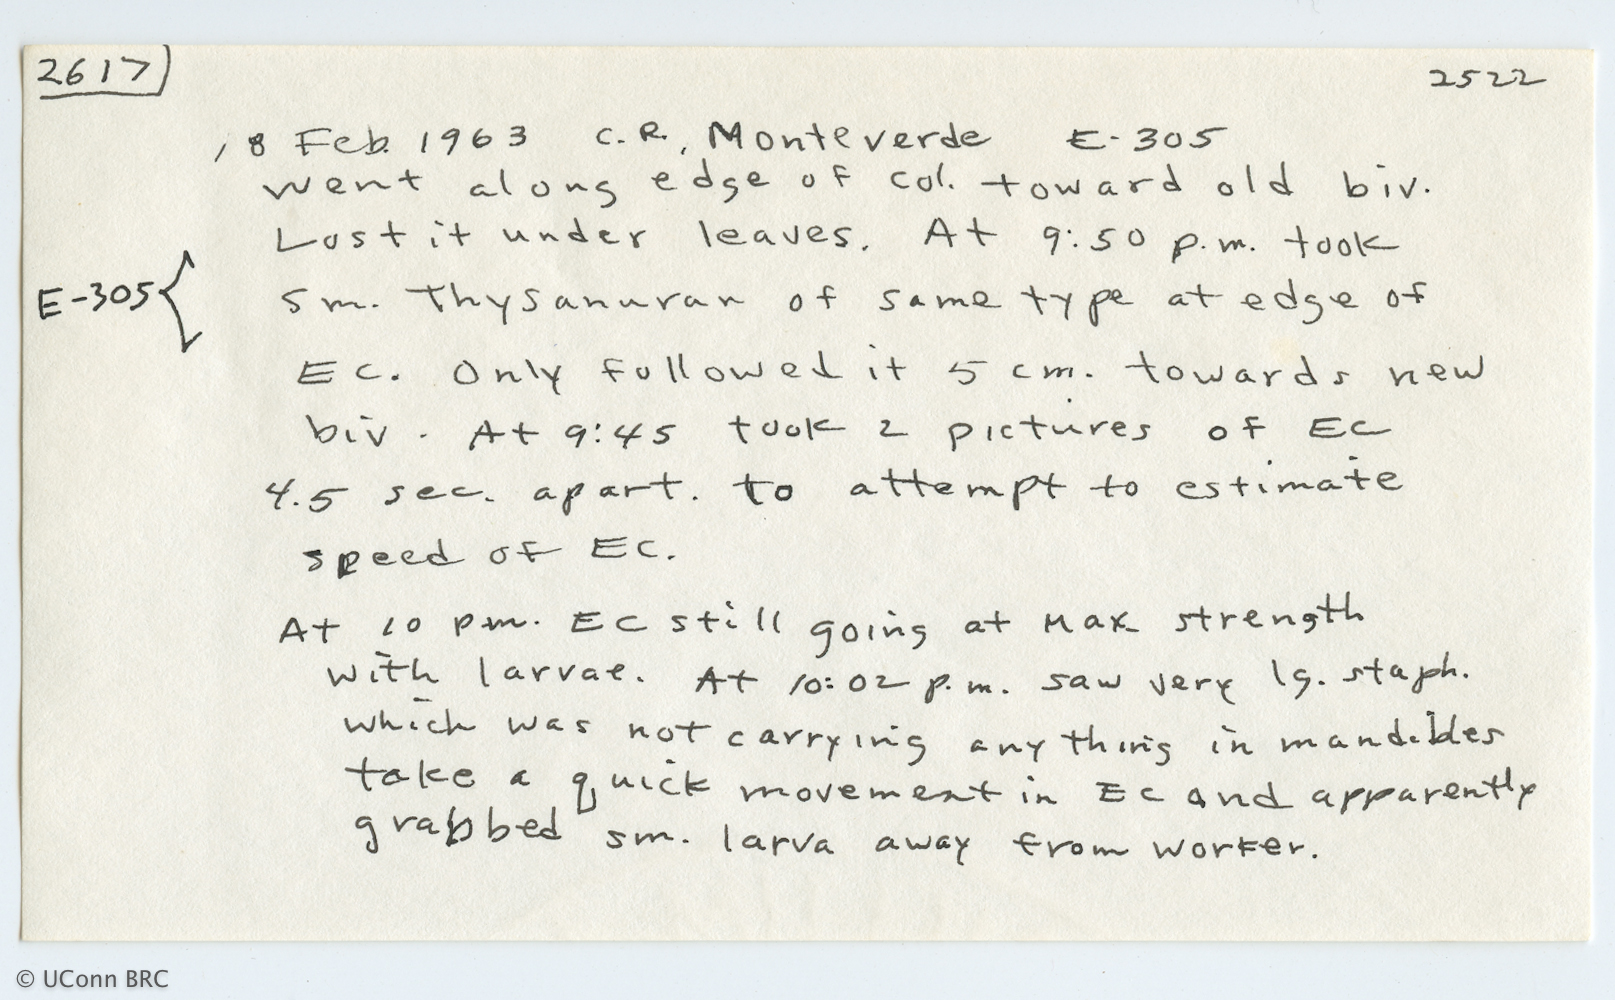 2617
2522
18 Feb. 1963 C.R., Monteverde E-305
went along edge of col. toward old biv.
Lost it under leaves. At 9:50 p.m. took
E-305 { sm. Thysanuran of same type at edge of
EC. Only followed it 5 cm. towards new
biv. At 9:45 took 2 pictures of EC
4.5 sec. apart. to attempt to estimate
speed of EC.
At 10 p.m. EC still going at Max strength
with larvae. At 10:02 p.m. saw very lg. staph.
which was not carrying anything in mandibles
take a quick movement in EC and apparently
grabbed sm. larva away from worker.
© UConn BRC